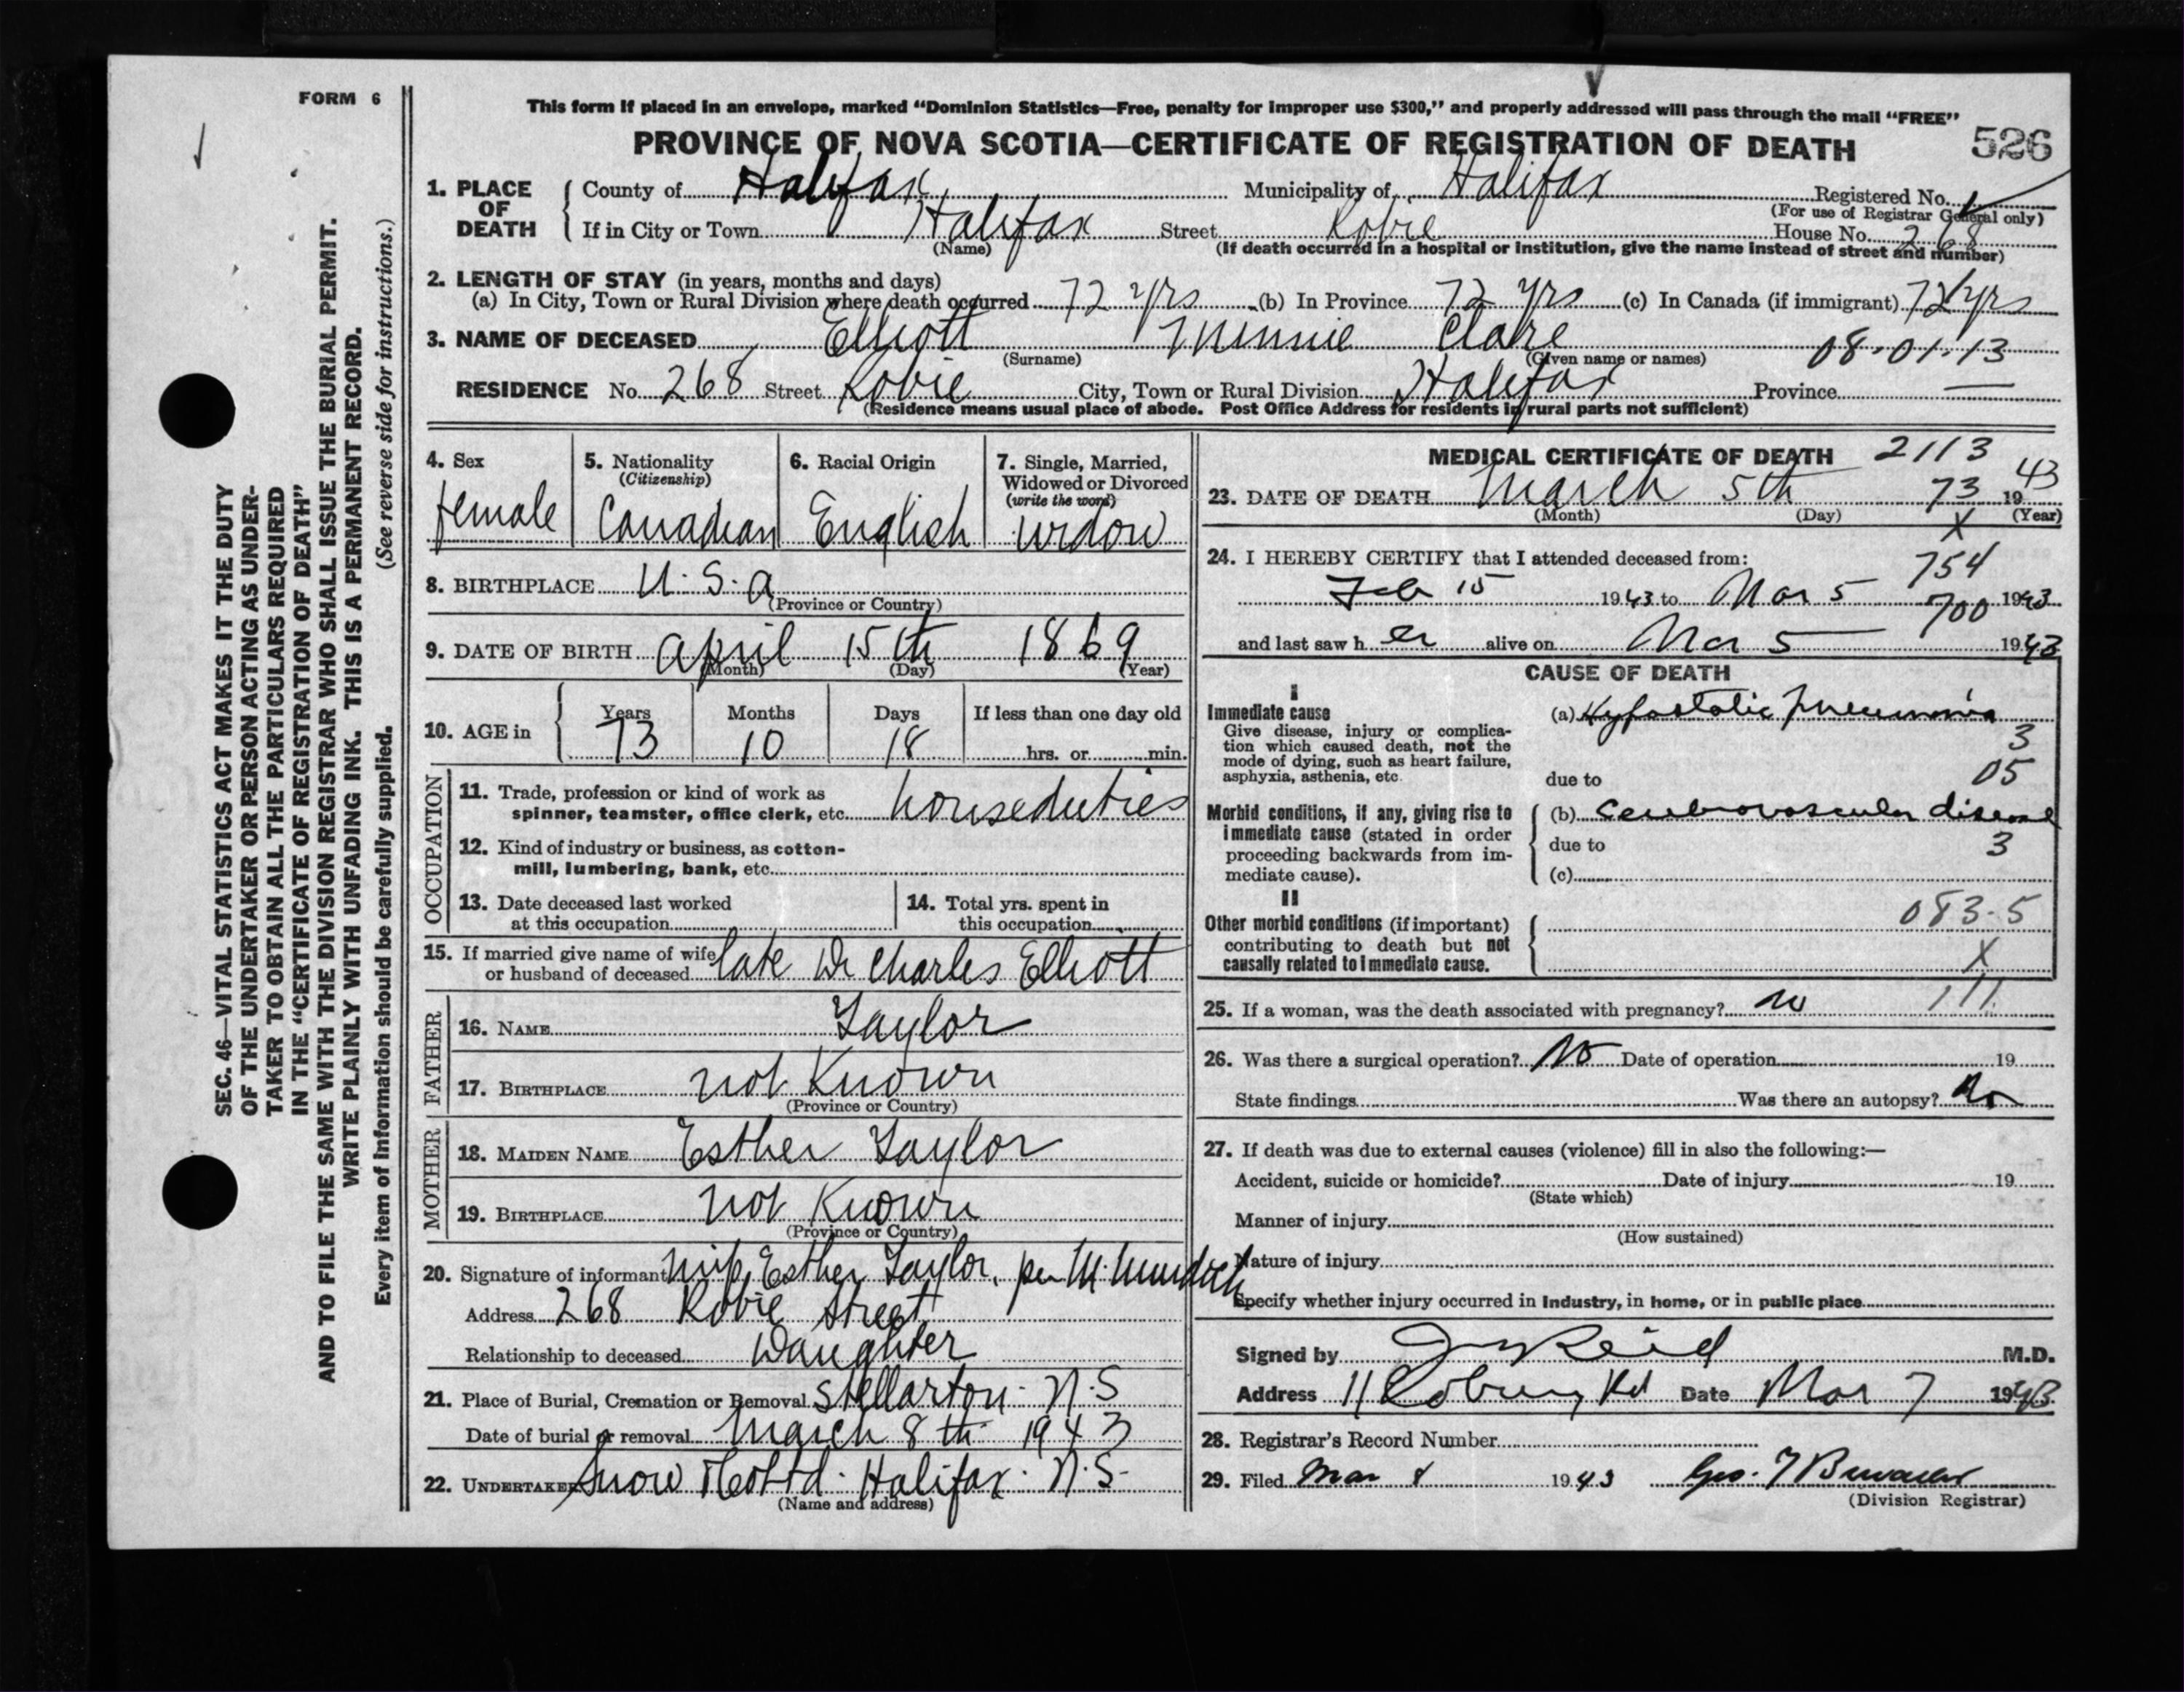 FORM 6
This form if placed in an envelope, marked “Dominion Statistics—Free, penalty for improper use $300,” and properly addressed will pass through the mail “FREE”
PROVINCE OF NOVA SCOTIA—CERTIFICATE OF REGISTRATION OF DEATH 526
1. PLACE OF DEATH
County of Halifax Municipality of Halifax Registered No.
(For use of Registrar General only)
If in City or Town Halifax Street Robie House No. 268
(Name) (If death occurred in a hospital or institution, give the name instead of street and number)
2. LENGTH OF STAY (in years, months and days)
(a) In City, Town or Rural Division where death occurred 72 yrs (b) In Province 72 yrs (c) In Canada (if immigrant) 72 yrs
3. NAME OF DECEASED Elliott Minnie Claire
(Surname) (Given name or names) 08.01.13
RESIDENCE No. 268 Street Robie City, Town or Rural Division Halifax Province —
(Residence means usual place of abode. Post Office Address for residents in rural parts not sufficient)
4. Sex
female
5. Nationality
(Citizenship)
Canadian
6. Racial Origin
English
7. Single, Married,
Widowed or Divorced
(write the word)
widow
8. BIRTHPLACE U.S.a
(Province or Country)
9. DATE OF BIRTH april 15th 1869
(Month) (Day) (Year)
10. AGE in
Years Months Days If less than one day old
73 10 18 hrs. or min.
OCCUPATION
11. Trade, profession or kind of work as
spinner, teamster, office clerk, etc. houseduties
12. Kind of industry or business, as cotton-
mill, lumbering, bank, etc.
13. Date deceased last worked
at this occupation
14. Total yrs. spent in
this occupation
15. If married give name of wife
or husband of deceased late Dr Charles Elliott
FATHER
16. NAME Taylor
17. BIRTHPLACE not Known
(Province or Country)
MOTHER
18. MAIDEN NAME Esther Taylor
19. BIRTHPLACE not Known
(Province or Country)
20. Signature of informant Miss Esther Taylor. per M. Murdoch
Address 268 Robie Street
Relationship to deceased Daughter
21. Place of Burial, Cremation or Removal Stellarton. N.S
Date of burial or removal March 8th 1943
22. UNDERTAKER Snow & Co Ltd. Halifax. N.S.
(Name and address)
MEDICAL CERTIFICATE OF DEATH 2113
23. DATE OF DEATH March 5th 73 1943
(Month) (Day) X (Year)
24. I HEREBY CERTIFY that I attended deceased from: 754
Feb 15 1943 to Mar 5 700 1943
and last saw her alive on Mar 5 1943
CAUSE OF DEATH
I
Immediate cause
Give disease, injury or complica-
tion which caused death, not the
mode of dying, such as heart failure,
asphyxia, asthenia, etc.
(a) Hypostatic Pneumonia
3
due to 05
Morbid conditions, if any, giving rise to
immediate cause (stated in order
proceeding backwards from im-
mediate cause).
(b) Cerebrovascular disease
due to 3
(c)
II
Other morbid conditions (if important)
contributing to death but not
causally related to immediate cause.
083.5
X
25. If a woman, was the death associated with pregnancy? no 111.
26. Was there a surgical operation? No Date of operation 19
State findings Was there an autopsy? No
27. If death was due to external causes (violence) fill in also the following:—
Accident, suicide or homicide? Date of injury 19
(State which)
Manner of injury
(How sustained)
Nature of injury
Specify whether injury occurred in industry, in home, or in public place
Signed by Reid M.D.
Address 11 Coburg Rd Date Mar 7 1943
28. Registrar's Record Number
29. Filed Mar 8 1943 Geo.
(Division Registrar)
SEC. 46—VITAL STATISTICS ACT MAKES IT THE DUTY
OF THE UNDERTAKER OR PERSON ACTING AS UNDER-
TAKER TO OBTAIN ALL THE PARTICULARS REQUIRED
IN THE “CERTIFICATE OF REGISTRATION OF DEATH”
AND TO FILE THE SAME WITH THE DIVISION REGISTRAR WHO SHALL ISSUE THE BURIAL PERMIT.
WRITE PLAINLY WITH UNFADING INK. THIS IS A PERMANENT RECORD.
Every item of information should be carefully supplied. (See reverse side for instructions.)